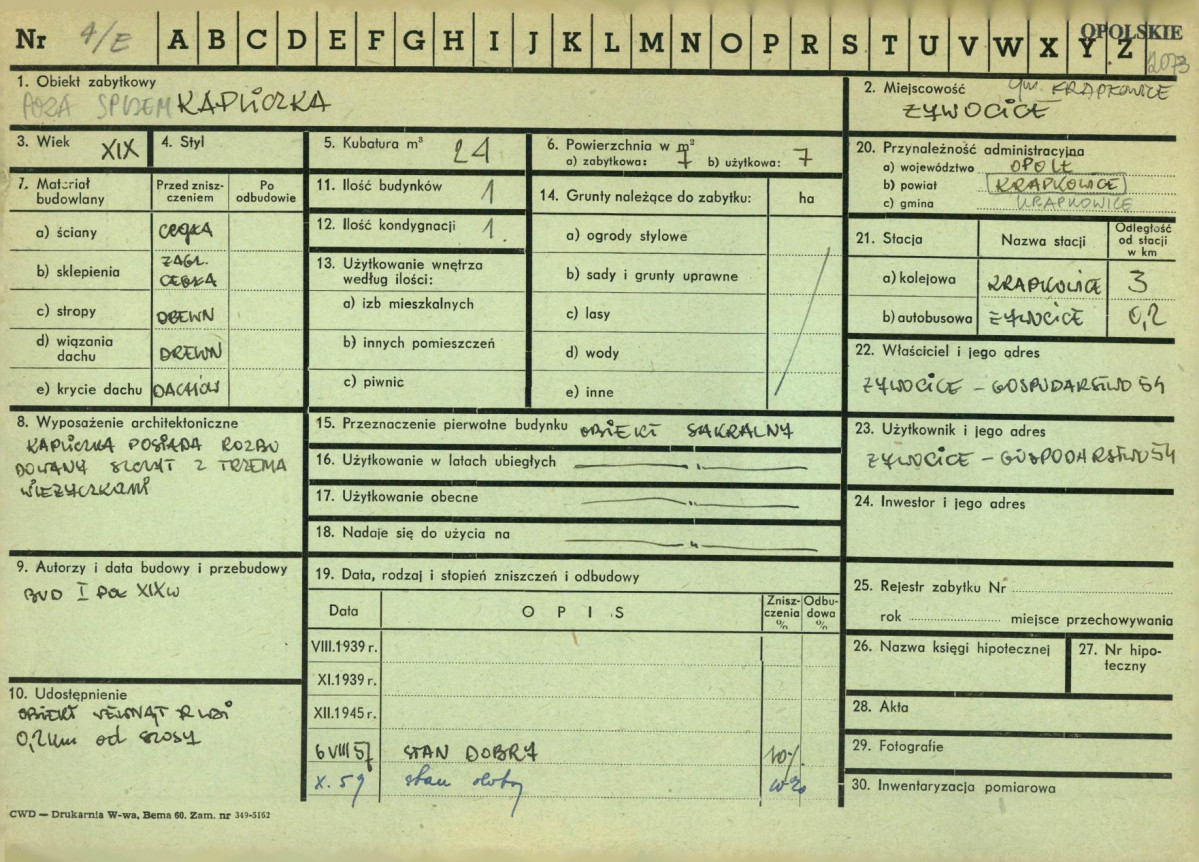 Nr 4/E A B C D E F G H I J K L M N O P R S T U V W X Y Z OPOLSKIE
12073
1. Obiekt zabytkowy
POZA SPISEM KAPLICZKA
2. Miejscowość gm. KRAPKOWICE
ŻYWOCICE
3. Wiek XIX
4. Styl
5. Kubatura m³ 24
6. Powierzchnia w m²
a) zabytkowa: 7 b) użytkowa: 7
20. Przynależność administracyjna
a) województwo OPOLE
b) powiat KRAPKOWICE
c) gmina KRAPKOWICE
7. Materiał budowlany
Przed zniszczeniem
Po odbudowie
a) ściany CEGŁA
b) sklepienia ŻAGL. CEGŁA
c) stropy DREWN
d) wiązania dachu DREWN
e) krycie dachu DACHÓW
11. Ilość budynków 1
12. Ilość kondygnacji 1.
13. Użytkowanie wnętrza według ilości:
a) izb mieszkalnych
b) innych pomieszczeń
c) piwnic
14. Grunty należące do zabytku: ha
a) ogrody stylowe
b) sady i grunty uprawne
c) lasy
d) wody
e) inne
21. Stacja
Nazwa stacji
Odległość od stacji w km
a) kolejowa KRAPKOWICE 3
b) autobusowa ŻYWOCICE 0,2
22. Właściciel i jego adres
ŻYWOCICE – GOSPODARSTWO 54
8. Wyposażenie architektoniczne
KAPLICZKA POSIADA ROZBU
DOWANY SZCZYT Z TRZEMA
WIEŻYCZKAMI
15. Przeznaczenie pierwotne budynku OBIEKT SAKRALNY
16. Użytkowanie w latach ubiegłych —„—
17. Użytkowanie obecne —„—
18. Nadaje się do użycia na —„—
23. Użytkownik i jego adres
ŻYWOCICE – GOSPODARSTWO 54
24. Inwestor i jego adres
9. Autorzy i data budowy i przebudowy
BUD I POŁ XIX w
19. Data, rodzaj i stopień zniszczeń i odbudowy
Data
OPIS
Zniszczenia %
Odbudowa %
VIII.1939 r.
XI.1939 r.
XII.1945 r.
6 VIII 57 STAN DOBRY 10%
X. 59 stan dobry
25. Rejestr zabytku Nr
rok miejsce przechowywania
26. Nazwa księgi hipotecznej
27. Nr hipoteczny
10. Udostępnienie
OBIEKT WEWNĄT R WSI
0,2 km od szosy
28. Akta
29. Fotografie
30. Inwentaryzacja pomiarowa
CWD — Drukarnia W-wa, Bema 60. Zam. nr 349-5162